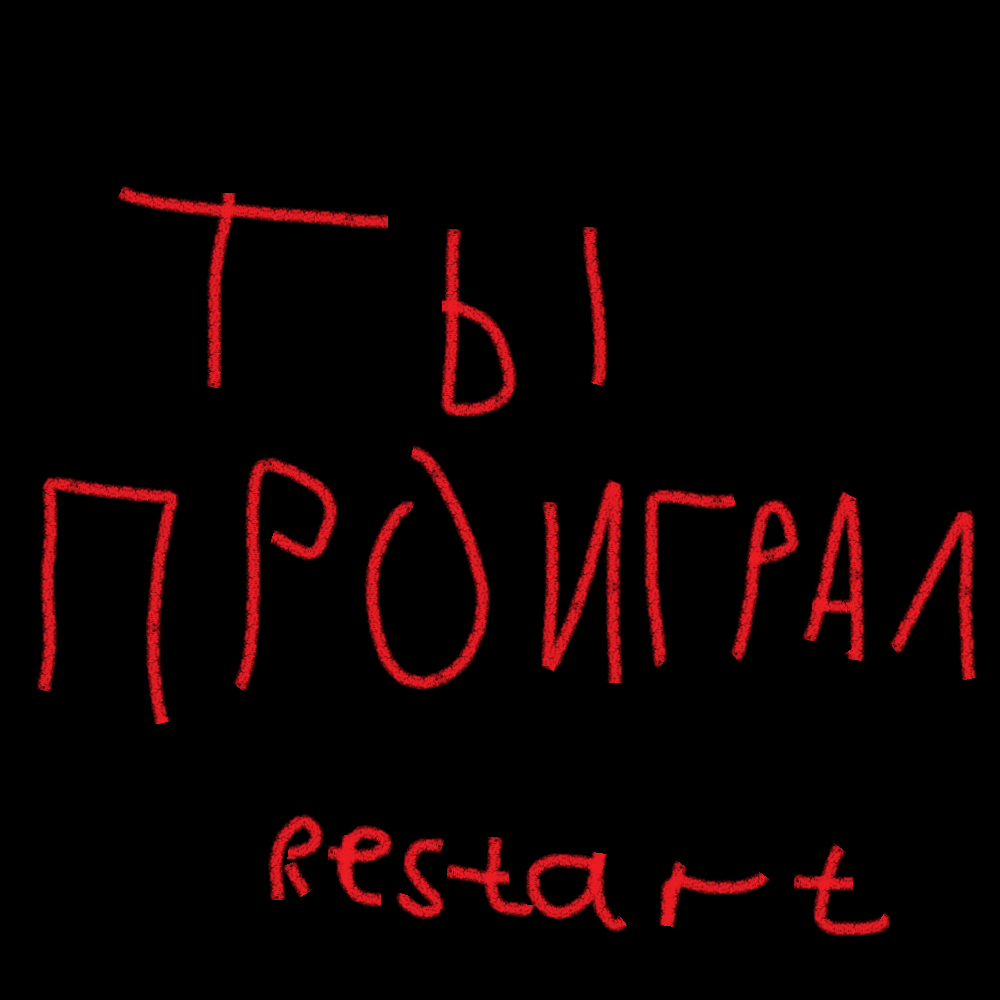 ТЫ
ПРОИГРАЛ
Restart